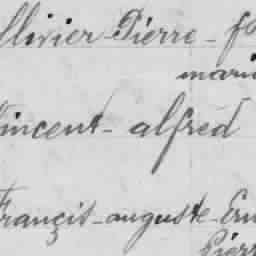 Ollivier Pierre - f
mari
Vincent - alfred
Françis - auguste - Ern
Pierr